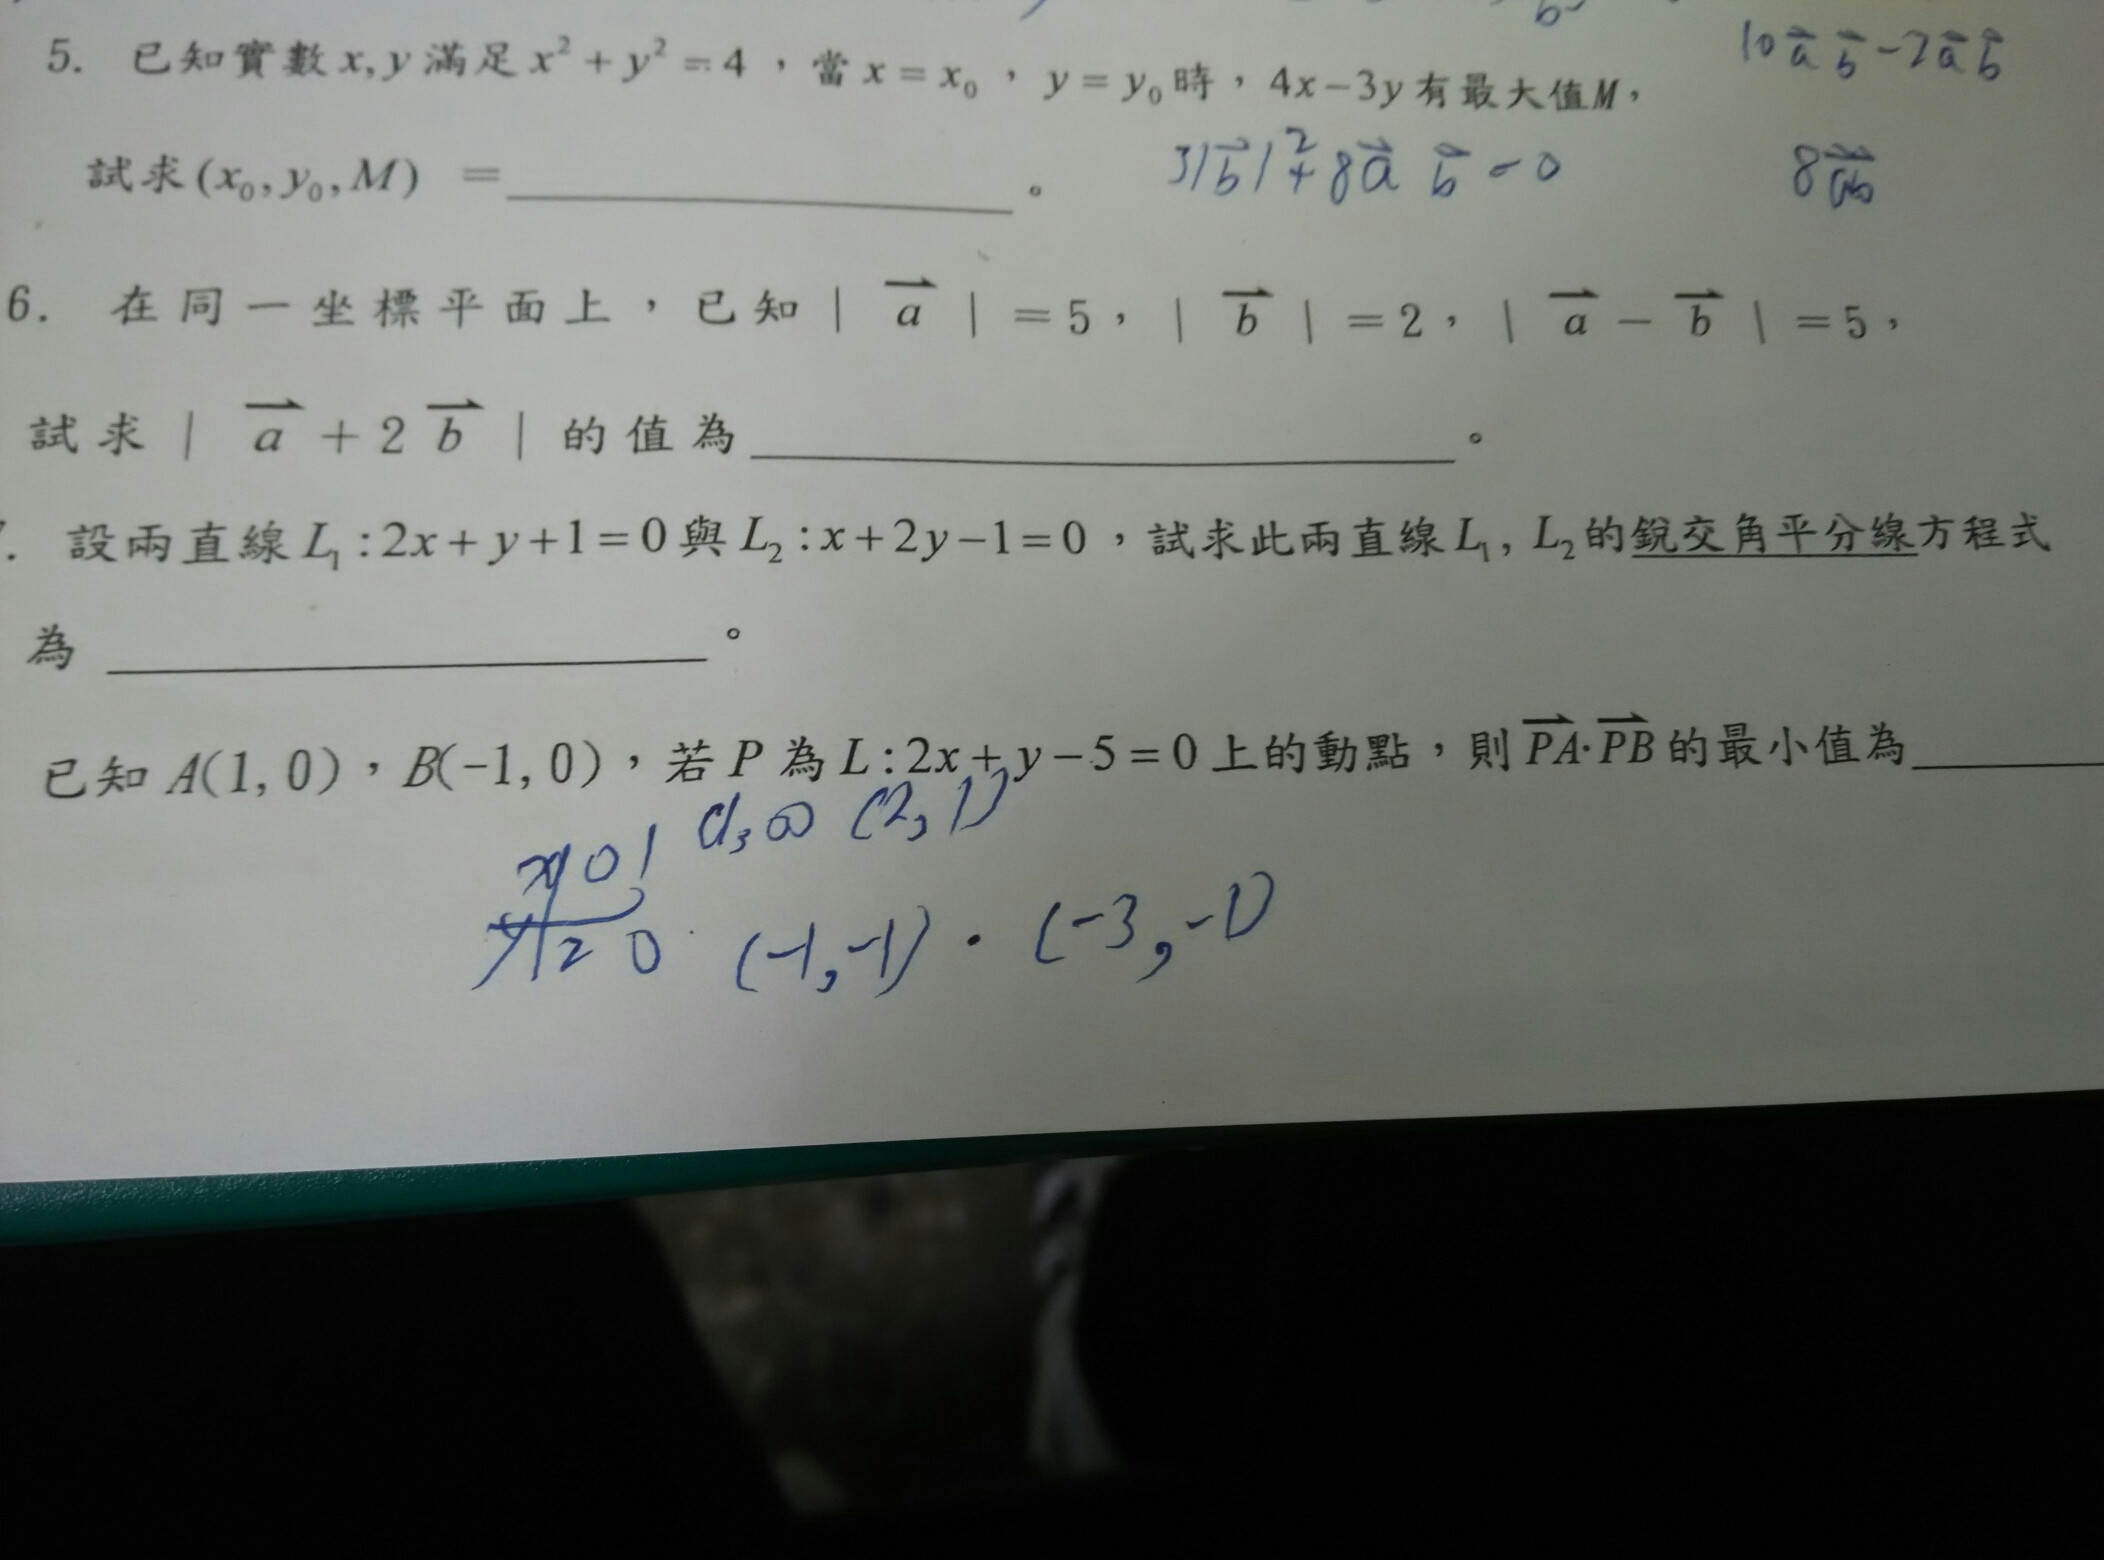 10a⃗ b⃗ -2a⃗ b⃗
5. 已知實數 x, y 滿足 x² + y² = 4，當 x = x₀，y = y₀ 時，4x-3y 有最大值M，
試求(x₀, y₀, M) = ＿＿＿＿。
3|b⃗|²+8a⃗ b⃗ =0
8a⃗b⃗
6. 在同一坐標平面上，已知 | a⃗ | = 5，| b⃗ | = 2，| a⃗ - b⃗ | = 5，
試求 | a⃗ + 2 b⃗ | 的值為＿＿＿＿。
. 設兩直線 L₁ : 2x + y + 1 = 0 與 L₂ : x + 2y - 1 = 0，試求此兩直線 L₁, L₂ 的銳交角平分線方程式
為 ＿＿＿＿。
已知 A(1, 0)，B(-1, 0)，若 P 為 L : 2x + y - 5 = 0 上的動點，則 P⃗A⃗·P⃗B⃗ 的最小值為＿＿＿＿
(2,1)
x 0 1
y 2 0 (-1,-1) · (-3,-1)